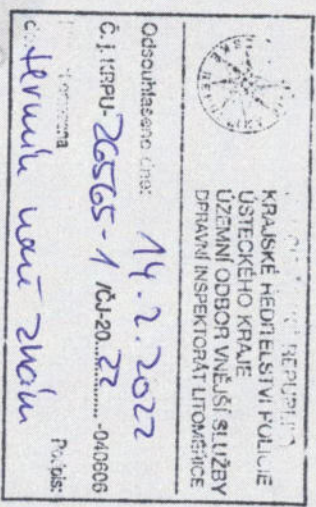 REPUBLIKA
KRAJSKÉ ŘEDITELSTVÍ POLICIE
ÚSTECKÉHO KRAJE
ÚZEMNÍ ODBOR VNĚJŠÍ SLUŽBY
DPRAVNÍ INSPEKTORÁT LITOMĚŘICE
Odsouhlaseno dne: 14.2.2022
Č.j. KRPU-26565-1/ČJ-20 22 -040606
Podpis:
termín není znám